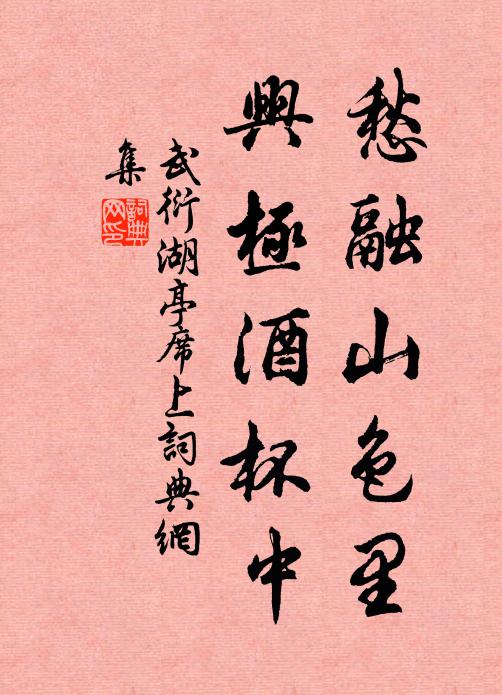 愁融山色里
興極酒杯中
武衍湖亭席上詞典網
集
詞典
网印